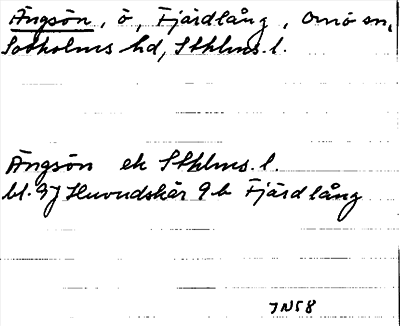 Ängsön, ö, Fjärdlång, Ornö sn,
Sotholms hd, Sthlms. l.
Ängsön ek Sthlms. l.
bl. 9J Huvudskär 9b Fjärdlång
7N58